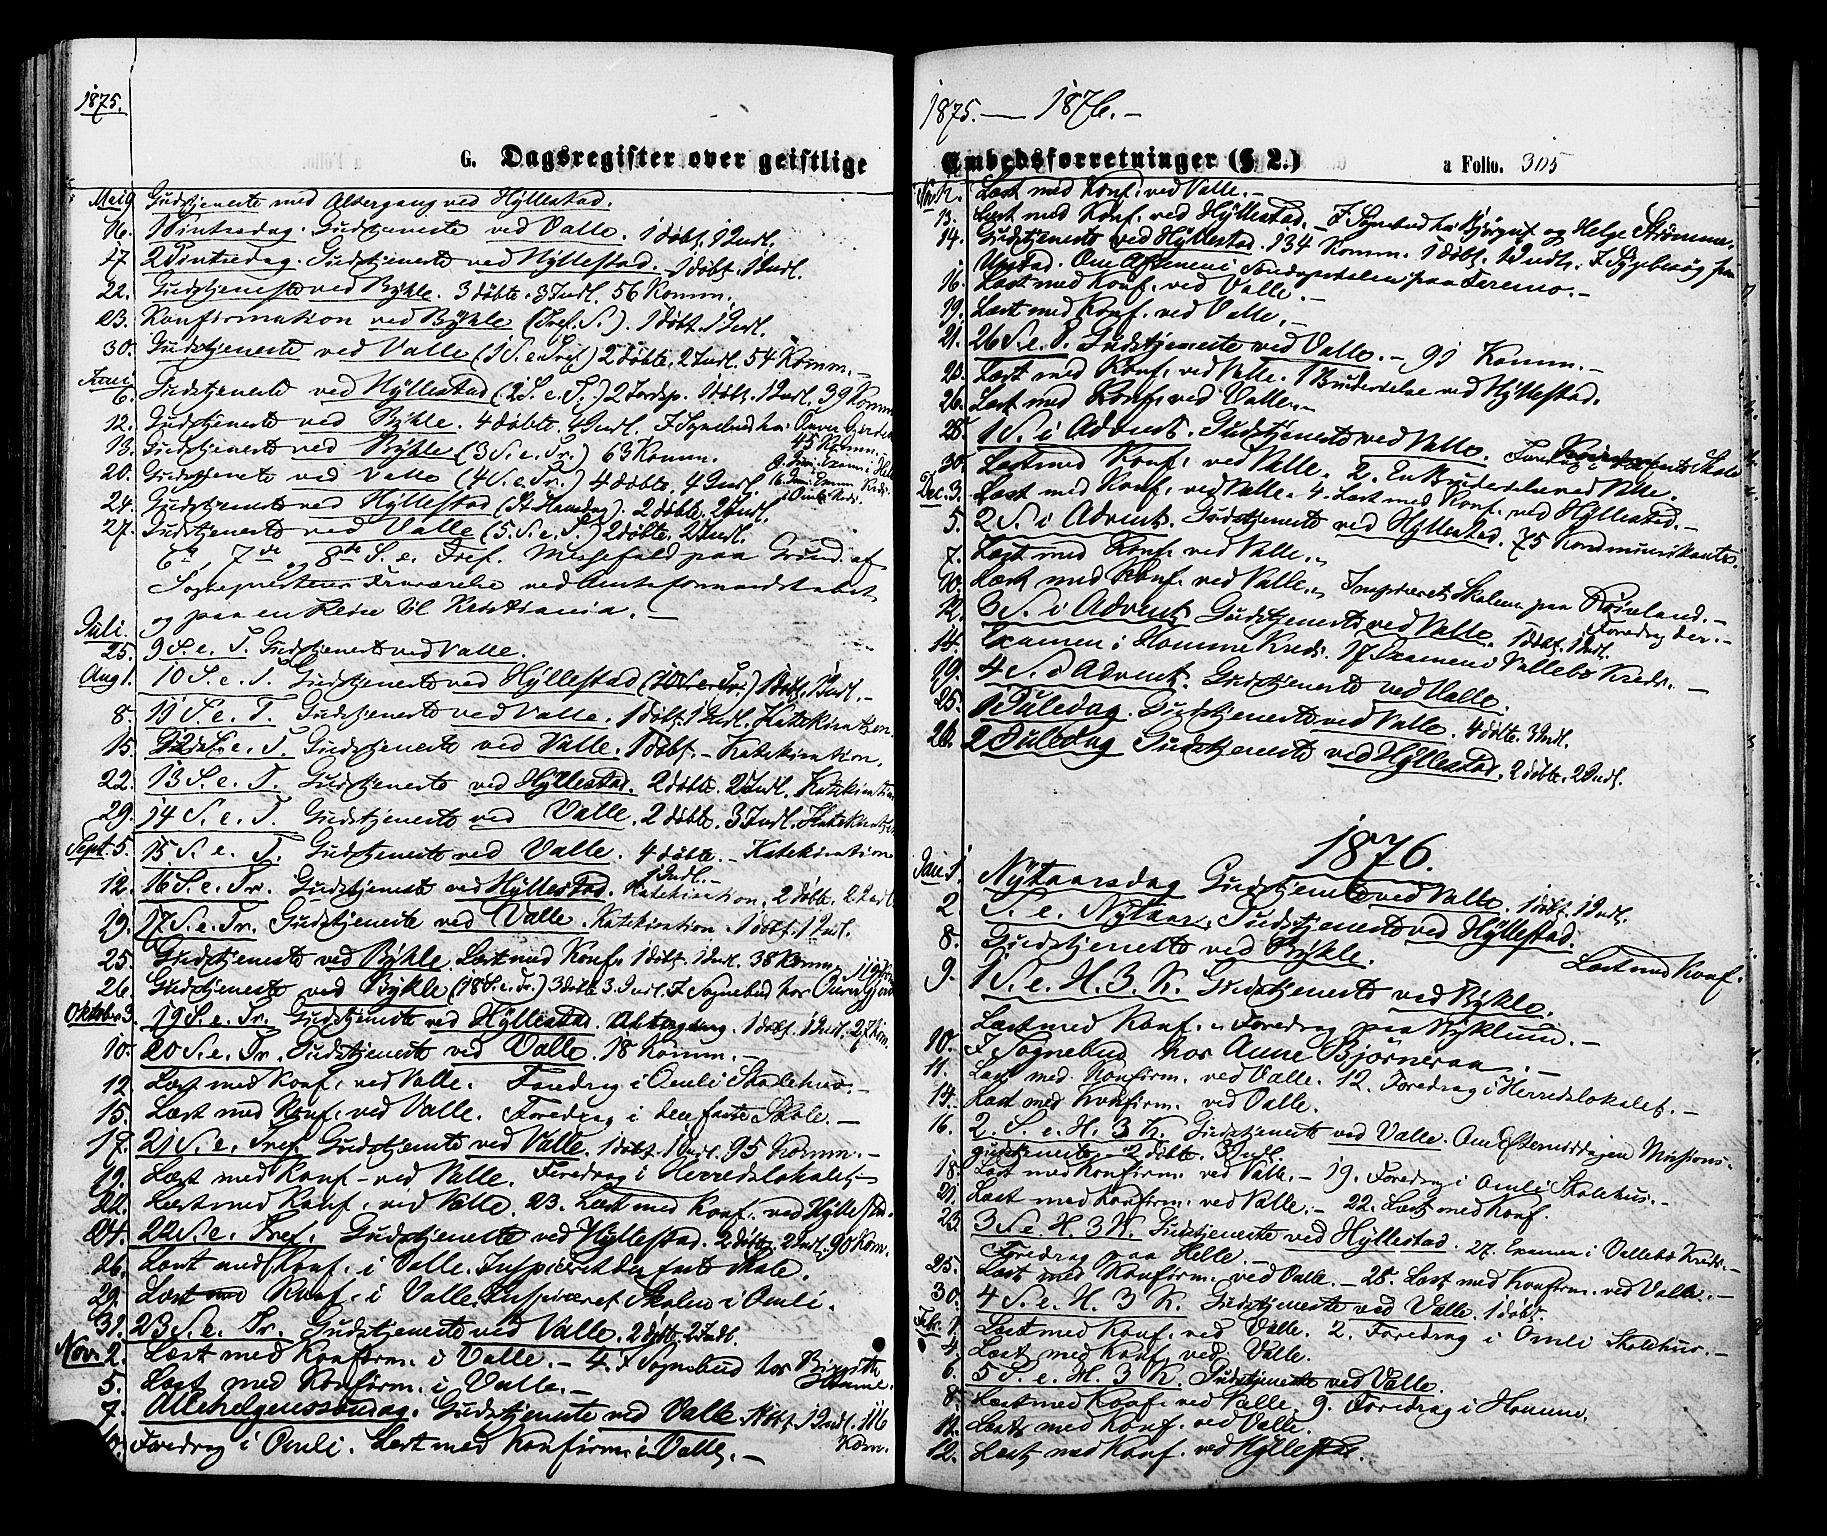 1875.
G. Dagsregister over geistlige
Mai 9 Gudstjeneste med Altergang ved Hyllestad.
16. 1 Pintsedag. Gudstjeneste ved Valle. 1 døbt. 1 Indl.
17 2 Pintsedag. Gudstjeneste ved Hyllestad. 1 døbt. 1 Indl.
22. Gudstjeneste ved Bykle. 3 døbte. 3 Indl. 56 Komm.
23. Konfirmation ved Bykle (Tref. S.). 1 døbt. 1 Indl.
30. Gudstjeneste ved Valle (1 S. e. Tref) 2 døbte. 2 Indl. 54 Komm.—
Juni 6. Gudstjeneste ved Hyllestad (2 S. e. T.) 2 Jordsp. 1 døbt. 1 Indl. 39 Komm
12. Gudstjeneste ved Bykle. 4 døbte. 4 Indl. I Sognebud hos
45 Komm.
13. Gudstjeneste ved Bykle (3 S. e. Tr.) 63 Komm.
20. Gudstjeneste ved Valle (4 S. e. Tr.) 4 døbte. 4 Indl.
24. Gudstjeneste ved Hyllestad (St. Hansdag). 2 døbte. 2 Indl.
27. Gudstjeneste ved Valle (5. S. e. T.) 2 døbte. 2 Indl.
6te, 7de og 8de S. e. Tref. Messefald paa Grund af
Sognepræstens Nærværelse ved Amtsformandskabet
og paa en Reise til Kristiania.—
Juli. 25. 9 S. e. T. Gudstjeneste ved Valle.
Aug 1. 10 S. e. T. Gudstjeneste ved Hyllestad (10 S. e. Tr.) 1 døbt. 1 Indl.—
8. 11 S. e. T. Gudstjeneste ved Valle. 1 døbt. 1 Indl. Katekisation.
15. 12 S. e. T. Gudstjeneste ved Valle. 1 døbt.— Katekisation.
22. 13 S. e. T. Gudstjeneste ved Hyllestad. 2 døbte. 2 Indl. Katekisation
29. 14 S. e. T. Gudstjeneste ved Valle. 2 døbte. 3 Indl. Katekisation
Sept. 5. 15 S. e. T. Gudstjeneste ved Valle. 4 døbte.— Katekisation
1 Indl.—
12. 16 S. e. Tr. Gudstjeneste ved Hyllestad. Katekisation. 2 døbte. 2 Indl.
19. 17 S. e. Tr. Gudstjeneste ved Valle. Katekisation. 1 døbt. 1 Indl.
25. Gudstjeneste ved Bykle. Læst med Konf. 1 døbt. 1 Indl. 38 Komm.
26. Gudstjeneste ved Bykle (18 S. e. Tr.) 3 døbte 3. Indl. I Sognebud hos
Oktober 3. 19 S. e. Tr. Gudstjeneste ved Hyllestad. Altergang. 1 døbt. 1 Indl. 27 Kom.
10. 20 S. e. Tr. Gudstjeneste ved Valle. 18 Komm.—
12. Læst med Konf. ved Valle. Foredrag i Omli Skolehus.—
15. Læst med Konf. ved Valle. Foredrag i den faste Skole.—
17. 21 S. e. Tref. Gudstjeneste ved Valle. 1 døbt. 1 Indl. 95 Komm.—
19. Læst med Konf. ved Valle. Foredrag i Herredslokalet.—
22. Læst med Konf. ved Valle. 23. Læst med Konf. ved Hyllestad.
24. 22 S. e. Tref. Gudstjeneste ved Hyllestad. 2 døbte. 2 Indl. 90 Kom.
26. Læst med Konf. i Valle. Inspiceret den faste Skole.
29. Læst med Konf. i Valle. Inspiceret Skolen i Omli.
31. 23 S. e. Tr. Gudstjeneste ved Valle. 2 døbte. 2 Indl.
Nov. 2. Læst med Konfirm. i Valle.— 4. I Sognebud hos Birgitte
Homme.
5. Læst med Konfirm. i Valle.—
7. Allehelgenssøndag. Gudstjeneste ved Valle. 1 døbt. 1 Indl. 116
Kom.
10. Foredrag i Omli. Læst med Konfirm. i Valle.—
1875.— 1876.—
Embedsforretninger (§ 2.) a Folio. 305
Nov. 12. Læst med Konf. ved Valle.—
13. Læst med Konf. ved Hyllestad.— I Sognebud hos og Helge Strømme.
14. Gudstjeneste ved Hyllestad. 134 Komm. 1 døbt. 1 Indl. I Sygebesøg
Om Aftenen i paa
16. Læst med Konf. ved Valle.—
19. Læst med Konf. ved Valle.—
21. 26 S. e. T. Gudstjeneste ved Valle.— 91 Komm.—
23. Læst med Konf. ved Valle. 1 Brudevielse ved Hyllestad.
26. Læst med Konf. ved Valle.—
28. 1 S. i Advent. Gudstjeneste ved Valle. Foredrag i faste Skole
30. Læst med Konf. ved Valle. 2. En Brudevielse ved Valle.
Dec. 3. Læst med Konf. ved Valle. 4. Læst med Konf. ved Hyllestad.—
5. 2 S. i Advent. Gudstjeneste ved Hyllestad. 75 Kommunikanter.
7. Læst med Konf. ved Valle.—
10. Læst med Konf. ved Valle.— Inspiceret Skolen paa Røisland.—
Foredrag der.—
12. 3 S. i Advent. Gudstjeneste ved Valle. 1 døbt. 1 Indl.
14. Examen i Homme Kreds. 17 Examen i Vallebø Kreds.—
19. 4 S. i Advent. Gudstjeneste ved Valle.
25. 1 Juledag. Gudstjeneste ved Valle. 4 døbte. 3 Indl.
26. 2 Juledag Gudstjeneste ved Hyllestad. 2 døbte. 2 Indl.
1876.
Jan. 1. Nytaarsdag Gudstjeneste ved Valle. 1 døbt. 1 Indl.
2 S. e. Nytaar. Gudstjeneste ved Hyllestad.
8. Gudstjeneste ved Bykle. Læst med Konf.
9. 1 S. e. H. 3 K. Gudstjeneste ved Bykle.
Læst med Konf. Foredrag paa Nyklund.—
10. I Sognebud hos Anne Bjørneraa.—
11. Læst med Konfirm. ved Valle. 12. Foredrag i Herredslokalet.—
14. Læst med Konfirm. ved Valle.
16. 2. S. e. H. 3 K. Gudstjeneste ved Valle. Om Eftermiddagen Missions-
gudstjeneste.— 2 døbte. 3 Indl.
18. Læst med Konfirm. ved Valle.— 19. Foredrag i Omli Skolehus.—
21. Læst med Konfirm. ved Valle.— 22. Læst med Konf.
23. 3 S. e. H. 3 K. Gudstjeneste ved Hyllestad. 27. Examen i Vallebø Kreds.—
Foredrag paa Helle.—
25. Læst med Konfirm. ved Valle.— 28. Læst med Konfirm. ved Valle.—
30. 4 S. e. H. 3 K. Gudstjeneste ved Valle. 1 døbt.
Febr. 1. Læst med Konf. ved Valle. 2. Foredrag i Omli Skolehus.—
4. Læst med Konf. ved Valle.
6. 5 S. e. H. 3 K. Gudstjeneste ved Valle.
8. Læst med Konf. ved Valle. 9. Foredrag i Homme.
11. Læst med Konf. ved Valle.
12. Læst med Konf. ved Hyllestad.